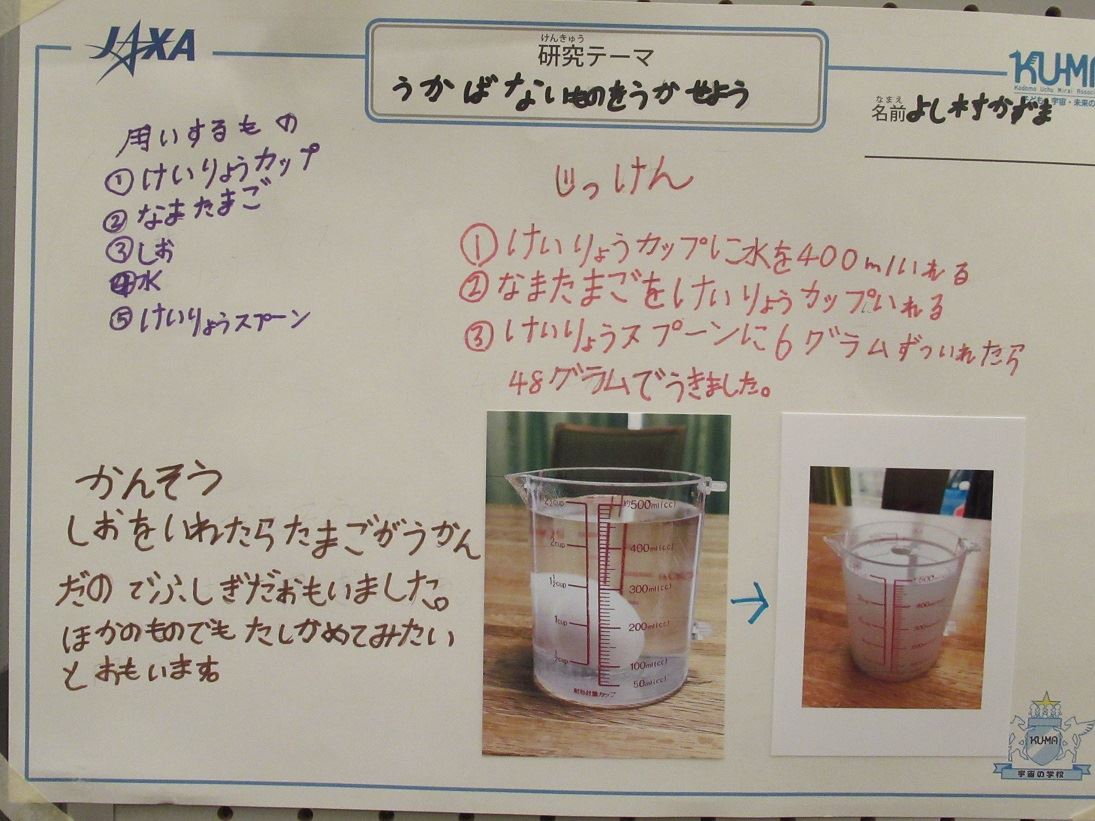 JAXA
けんきゅう
研究テーマ
うかばないものをうかせよう
KU-MA
Kodomo Uchu Mirai Associ
なまえ
名前 よし木すかずま
用いするもの
①けいりょうカップ
②なまたまご
③しお
④水
⑤けいりょうスプーン
じっけん
①けいりょうカップに水を400mlいれる
②なまたまごをけいりょうカップいれる
③けいりょうスプーンに6グラムずついれたら
48グラムでうきました。
かんそう
しおをいれたらたまごがうかん
だのでふしぎだおもいました。
ほかのものでもたしかめてみたい
とおもいます。
2½cup
2cup
1½cup
1cup
½cup
約500ml(cc)
400ml(cc)
300ml(cc)
200ml(cc)
100ml(cc)
50ml(cc)
耐熱計量カップ
KU-MA
宇宙の学校